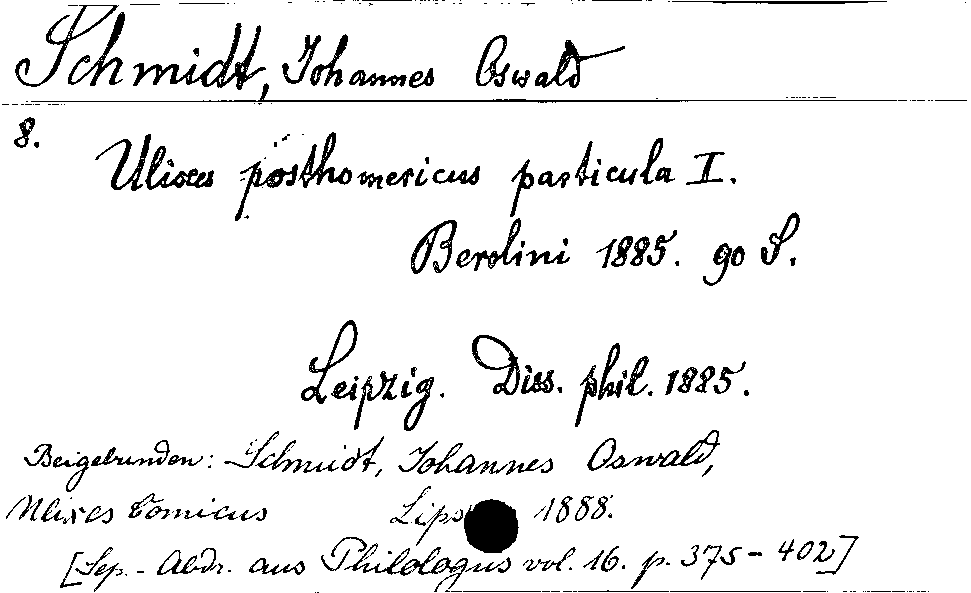 Schmidt, Johannes Oswald
8.
Ulixes posthomericus particula I.
Berolini 1885. 90 S.
Leipzig. Diss. phil. 1885.
Beigebunden: Schmidt, Johannes Oswald,
Ulixes comicus 1888.
[Sep.-Abdr. aus Philologus vol. 16. p. 375-402]